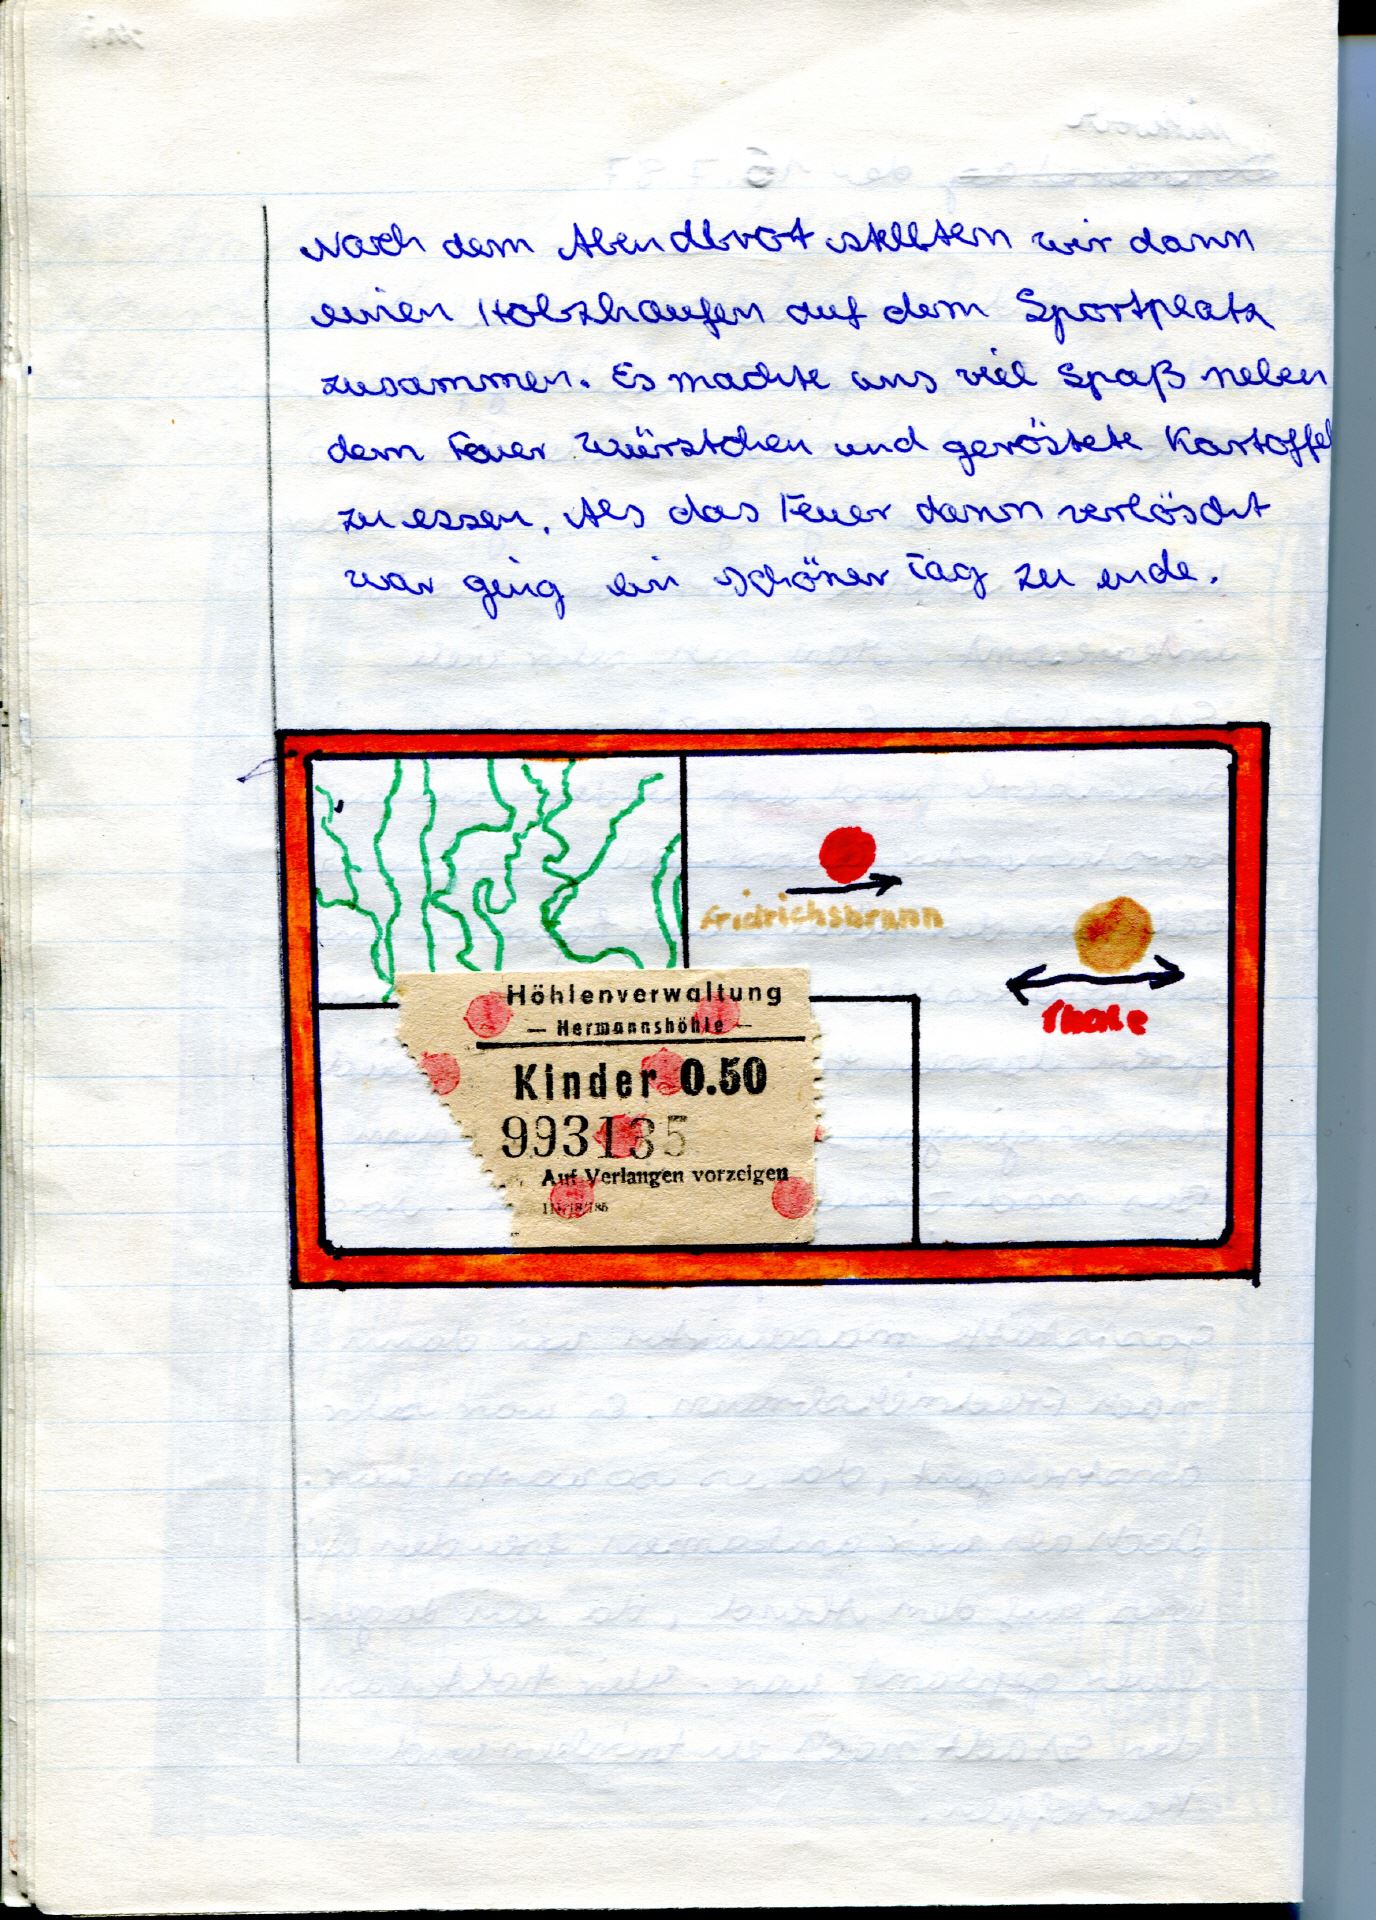 Nach dem Abendbrot stellten wir dann
einen Holzhaufen auf dem Sportplatz
zusammen. Es machte uns viel Spaß neben
dem Feuer Würstchen und geröstete Kartoffel
zu essen. Als das Feuer dann verlöscht
war ging ein schöner Tag zu ende.
Fridrichsbrunn
Thale
Höhlenverwaltung
— Hermannshöhle —
Kinder 0.50
993135
Auf Verlangen vorzeigen